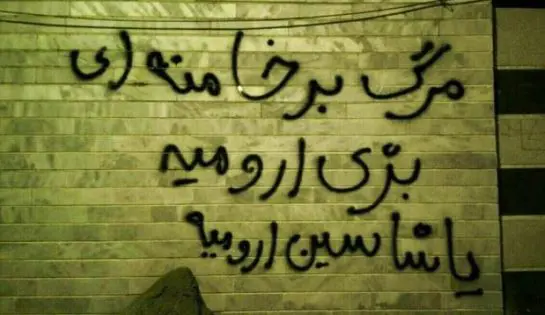 مرگ بر خامنه ای
برّی ارومیه
یاشاسین ارومیه